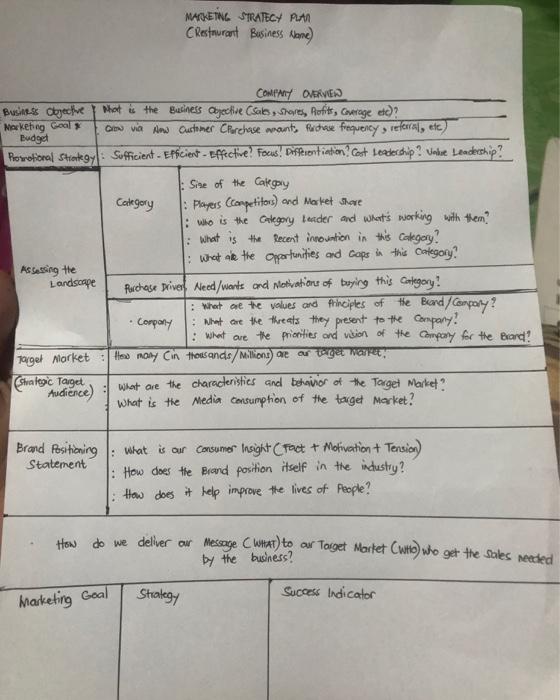 MARKETING STRATEGY PLAN
(Restaurant Business Name)
COMPANY OVERVIEW
Business Objective : What is the Business Objective (Sales, Shares, Profits, Coverage etc)?
Marketing Goal & Budget : Grow via New Customer (Purchase amount, Purchase frequency, referral, etc)
Promotional Strategy : Sufficient - Efficient - Effective? Focus? Differentiation? Cost Leadership? Value Leadership?
Assessing the Landscape
Category
: Size of the Category
: Players (Competitors) and Market Share
: who is the Category Leader and what's working with them?
: What is the Recent innovation in this Category?
: What are the Opportunities and Gaps in this Category?
Purchase Driver Need/wants and Motivations of buying this Category?
· Company
: What are the values and Principles of the Brand/Company?
: What are the threats they present to the Company?
: What are the priorities and vision of the Company for the Brand?
Target Market : How many (in thousands/Millions) are our target market?
(Strategic Target Audience) : What are the characteristics and behavior of the Target Market?
: What is the Media consumption of the target Market?
Brand Positioning Statement
: What is our Consumer Insight (Fact + Motivation + Tension)
: How does the Brand position itself in the industry?
: How does it help improve the lives of People?
· How do we deliver our Message (WHAT) to our Target Market (WHO) who get the Sales needed
by the business?
Marketing Goal Strategy Success Indicator